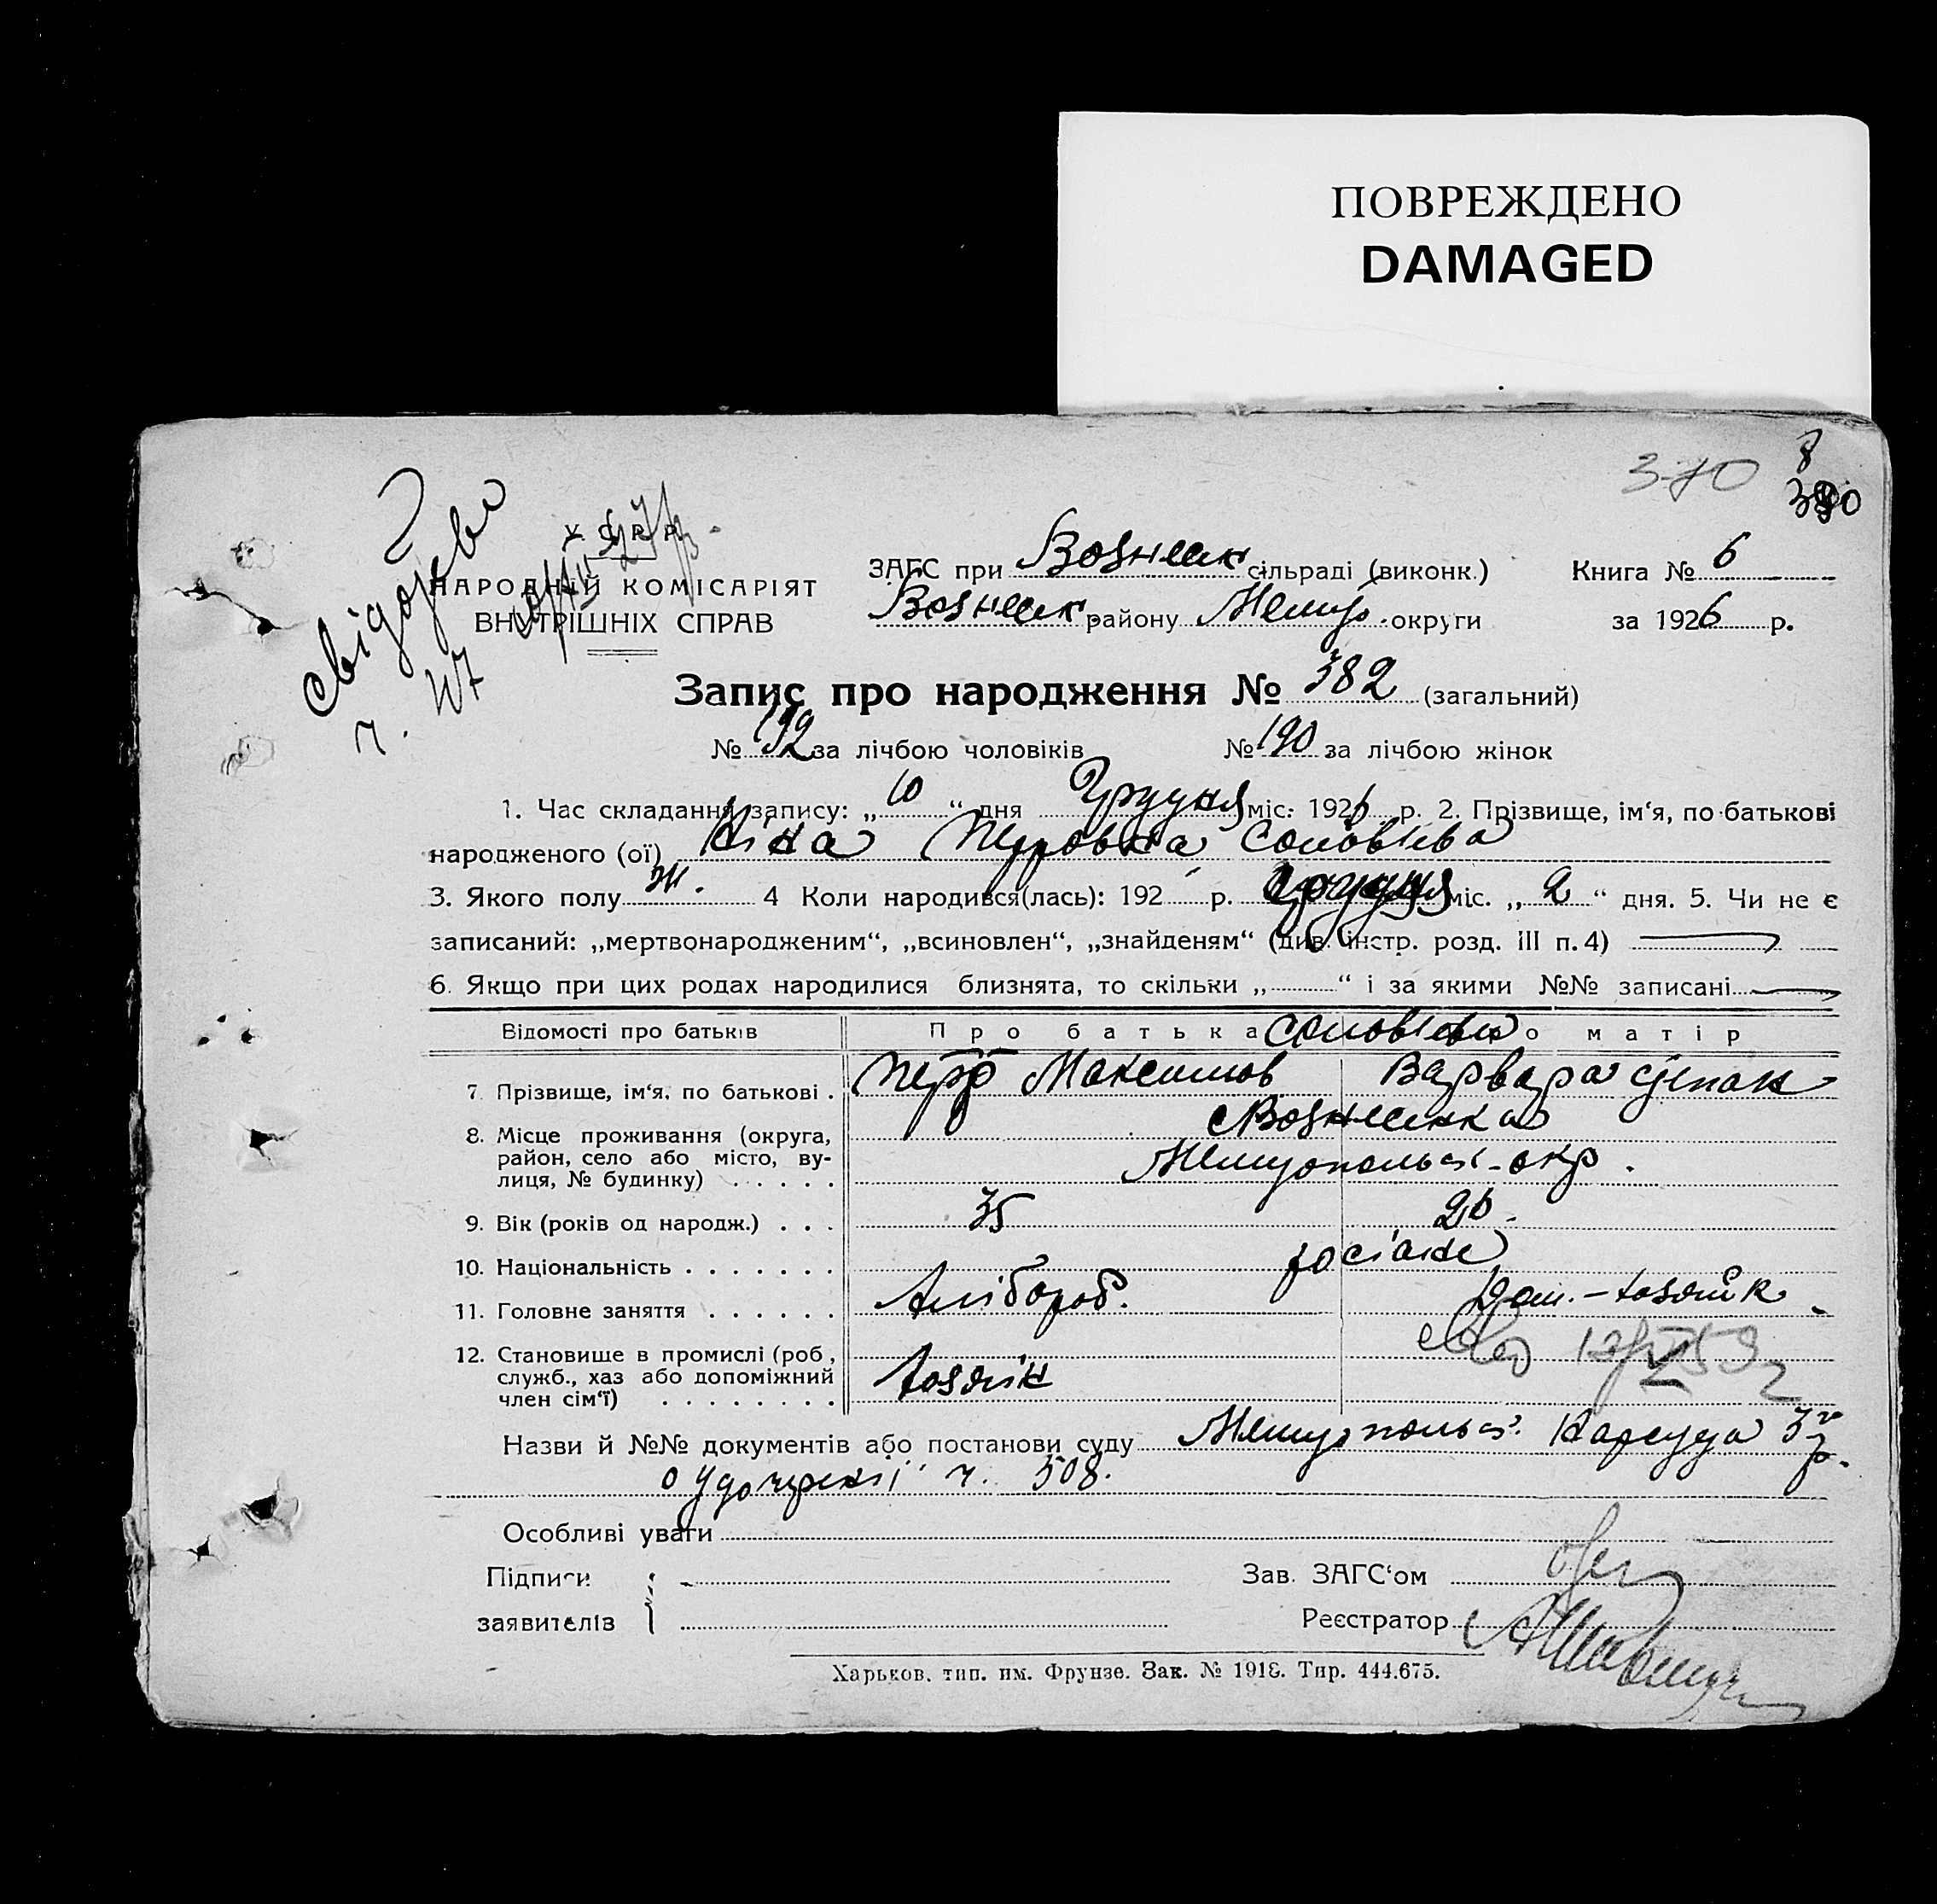 ПОВРЕЖДЕНО
DAMAGED
370
8
380
свідоцтво
ч. 107
У. С. Р. Р.
НАРОДНІЙ КОМІСАРІЯТ
ВНУТРІШНІХ СПРАВ
ЗАГС при Вознесен сільраді (виконк.) Книга № 6
Вознесен району Меліт. округи за 1926 р.
Запис про народження № 382 (загальний)
№ 192 за лічбою чоловіків № 190 за лічбою жінок
1. Час складання запису: „ 10 “ дня Грудня міс. 1926 р. 2. Прізвище, ім‘я, по батькові
народженого (ої) Ніна Петровна Соловьева
3. Якого полу ж. 4 Коли народився(лась): 192 р. Грудня міс. „ 2 “ дня. 5. Чи не є
записаний: „мертвонародженим“, „всиновлен“, „знайденям“ (див. інстр. розд. III п. 4)
6. Якщо при цих родах народилися близнята, то скільки „ “ і за якими №№ записані
Відомості про батьків Про батька Соловьеви Про матір
7. Прізвище, ім‘я, по батькові . Петр Максимов Варвара Степан
8. Місце проживання (округа, Вознесенка
район, село або місто, ву- Мелитопольск. окр.
лиця, № будинку) . . . . .
9. Вік (років од народж.) . . . 35 26
10. Національність . . . . . . . росіане
11. Головне заняття . . . . . . Хлібороб. Дом. - хозяйк.
12. Становище в промислі (роб.,
служб., хаз або допоміжний хозяїн
член сім‘ї) . . . . . . . .
Назви й №№ документів або постанови суду Мелитопольск. Нарсуда 3го р.
о удочрекії ч. 508.
Особливі уваги
Підписи Зав. ЗАГС‘ом
заявителів Реєстратор
Харьков, тип. им. Фрунзе. Зак. № 1918. Тир. 444.675.